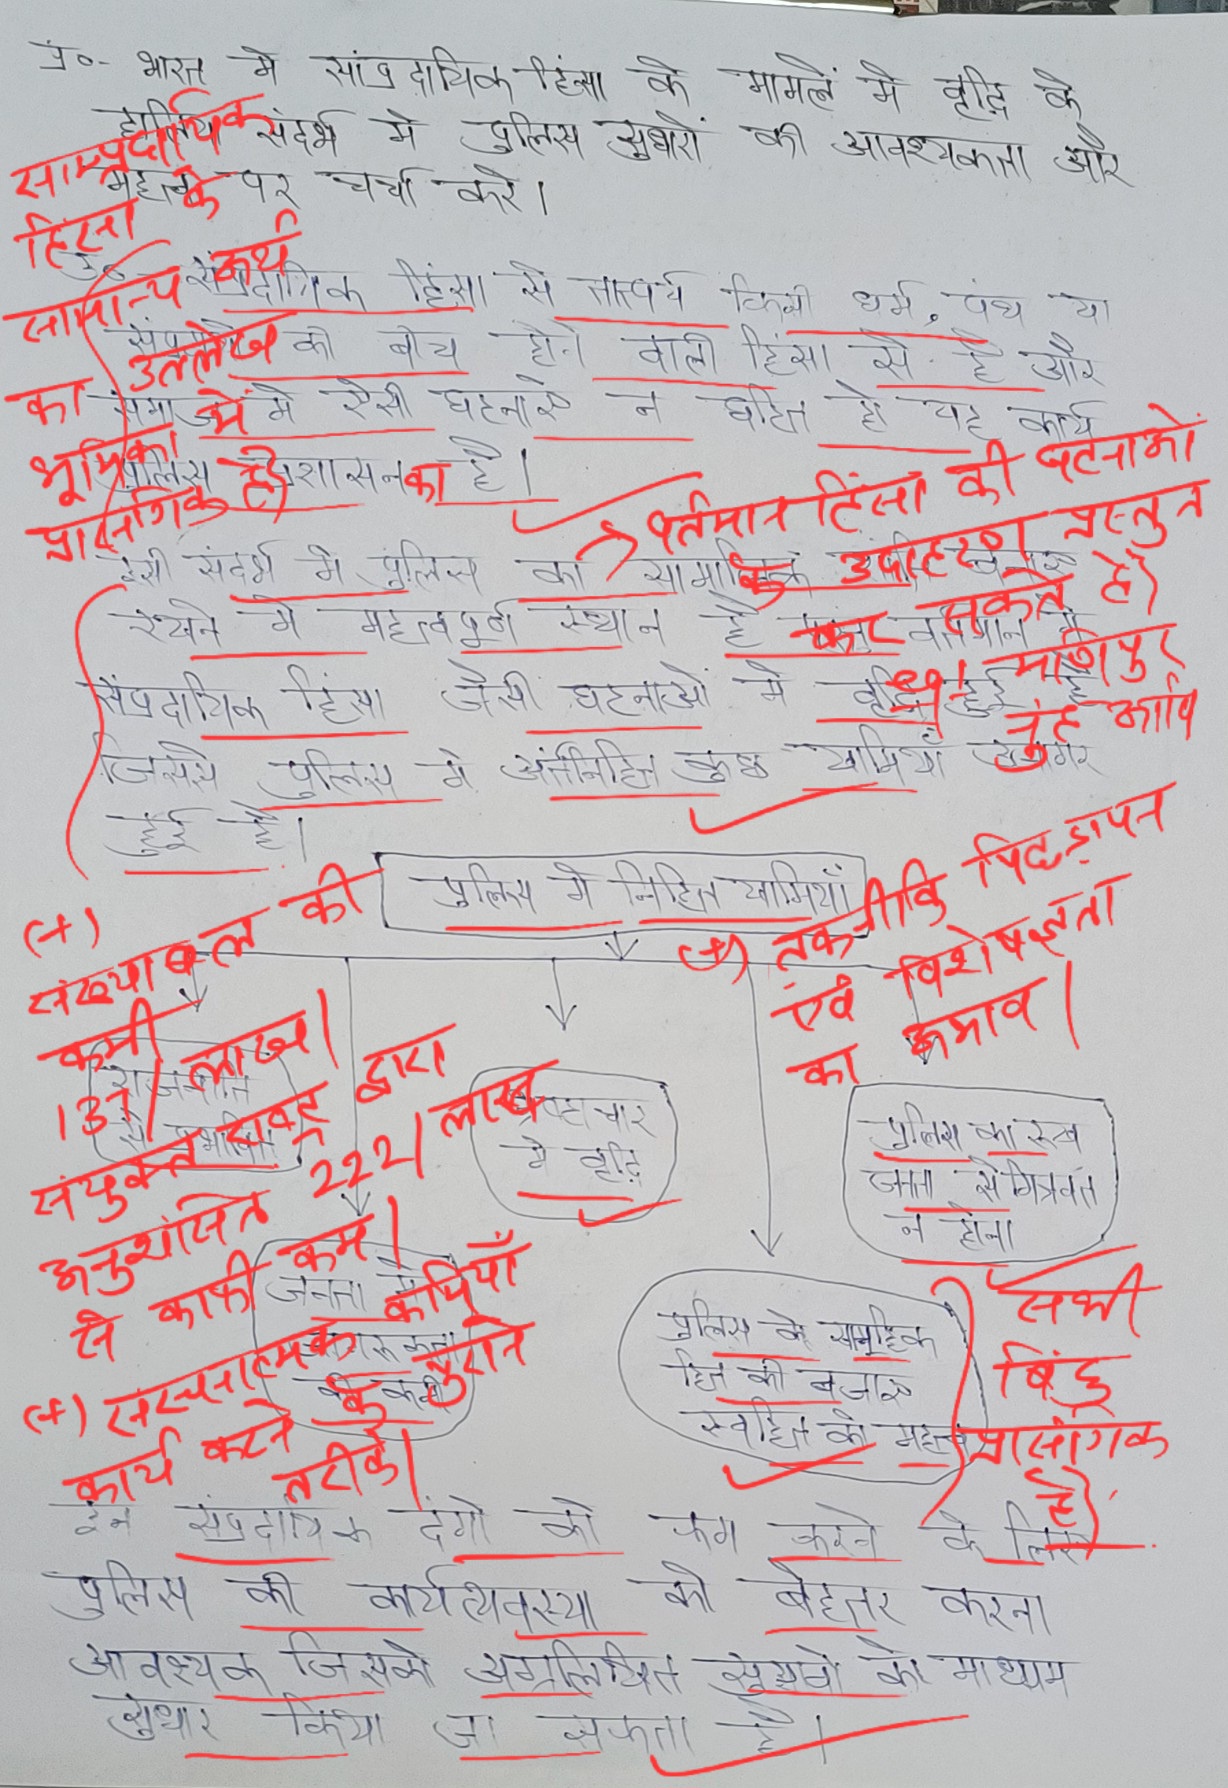 प्र०- भारत मे सांप्रदायिक हिंसा के मामलें मे वृद्धि के
संदर्भ मे पुलिस सुधारों की आवश्यकता और
महत्व पर चर्चा करे।
साम्प्रदायिक
हिंसा के
सामान्य अर्थ
का उल्लेख
भूमिका में
प्रासंगिक है)
उ० सांप्रदायिक हिंसा से तात्पर्य किसी धर्म, पंथ या
की बीच होने वाली हिंसा से है और
समाज मे ऐसी घटनाऐ न घटित हो यह कार्य
पुलिस प्रशासन का है।
→ वर्तमान हिंसा की घटनाओं
के उदाहरण प्रस्तुत
कर सकते है)
मणिपुर
नुंह आदि
इसी संदर्भ मे पुलिस का सामाजिक
रखने मे महत्वपूर्ण स्थान है परंतु वर्तमान मे
संप्रदायिक हिंसा जैसी घटनाओ मे वृद्धि हुई है
जिससे पुलिस मे अंतर्निहित कुछ खामियाँ उजागर
हुई है।
पुलिस मे निहित खामियाँ
(+)
संख्याबल की
कमी
137/ लाख।
संयुक्त राष्ट्र द्वारा
अनुशंसित 222/ लाख
से काफी कम।
(+) संरचनात्मक कमियाँ
कार्य करने के पुराने
तरीके।
(+) तकनीकि पिछड़ापन
एवं विशेषज्ञता
का अभाव।
राजनीति
से प्रभावित
भ्रष्टाचार
मे वृद्धि
पुलिस का रुख
जनता से मित्रवत
न होना
जनता मे
जागरूकता
की कमी
पुलिस के सामूहिक
हित की बजाए
स्वहित को महत्व
सभी
बिंदु
प्रासंगिक
है)
इन संप्रदायिक दंगो को कम करने के लिए
पुलिस की कार्यव्यवस्था को बेहतर करना
आवश्यक जिसको अग्रलिखित सुझावो के माध्यम
सुधार किया जा सकता है।